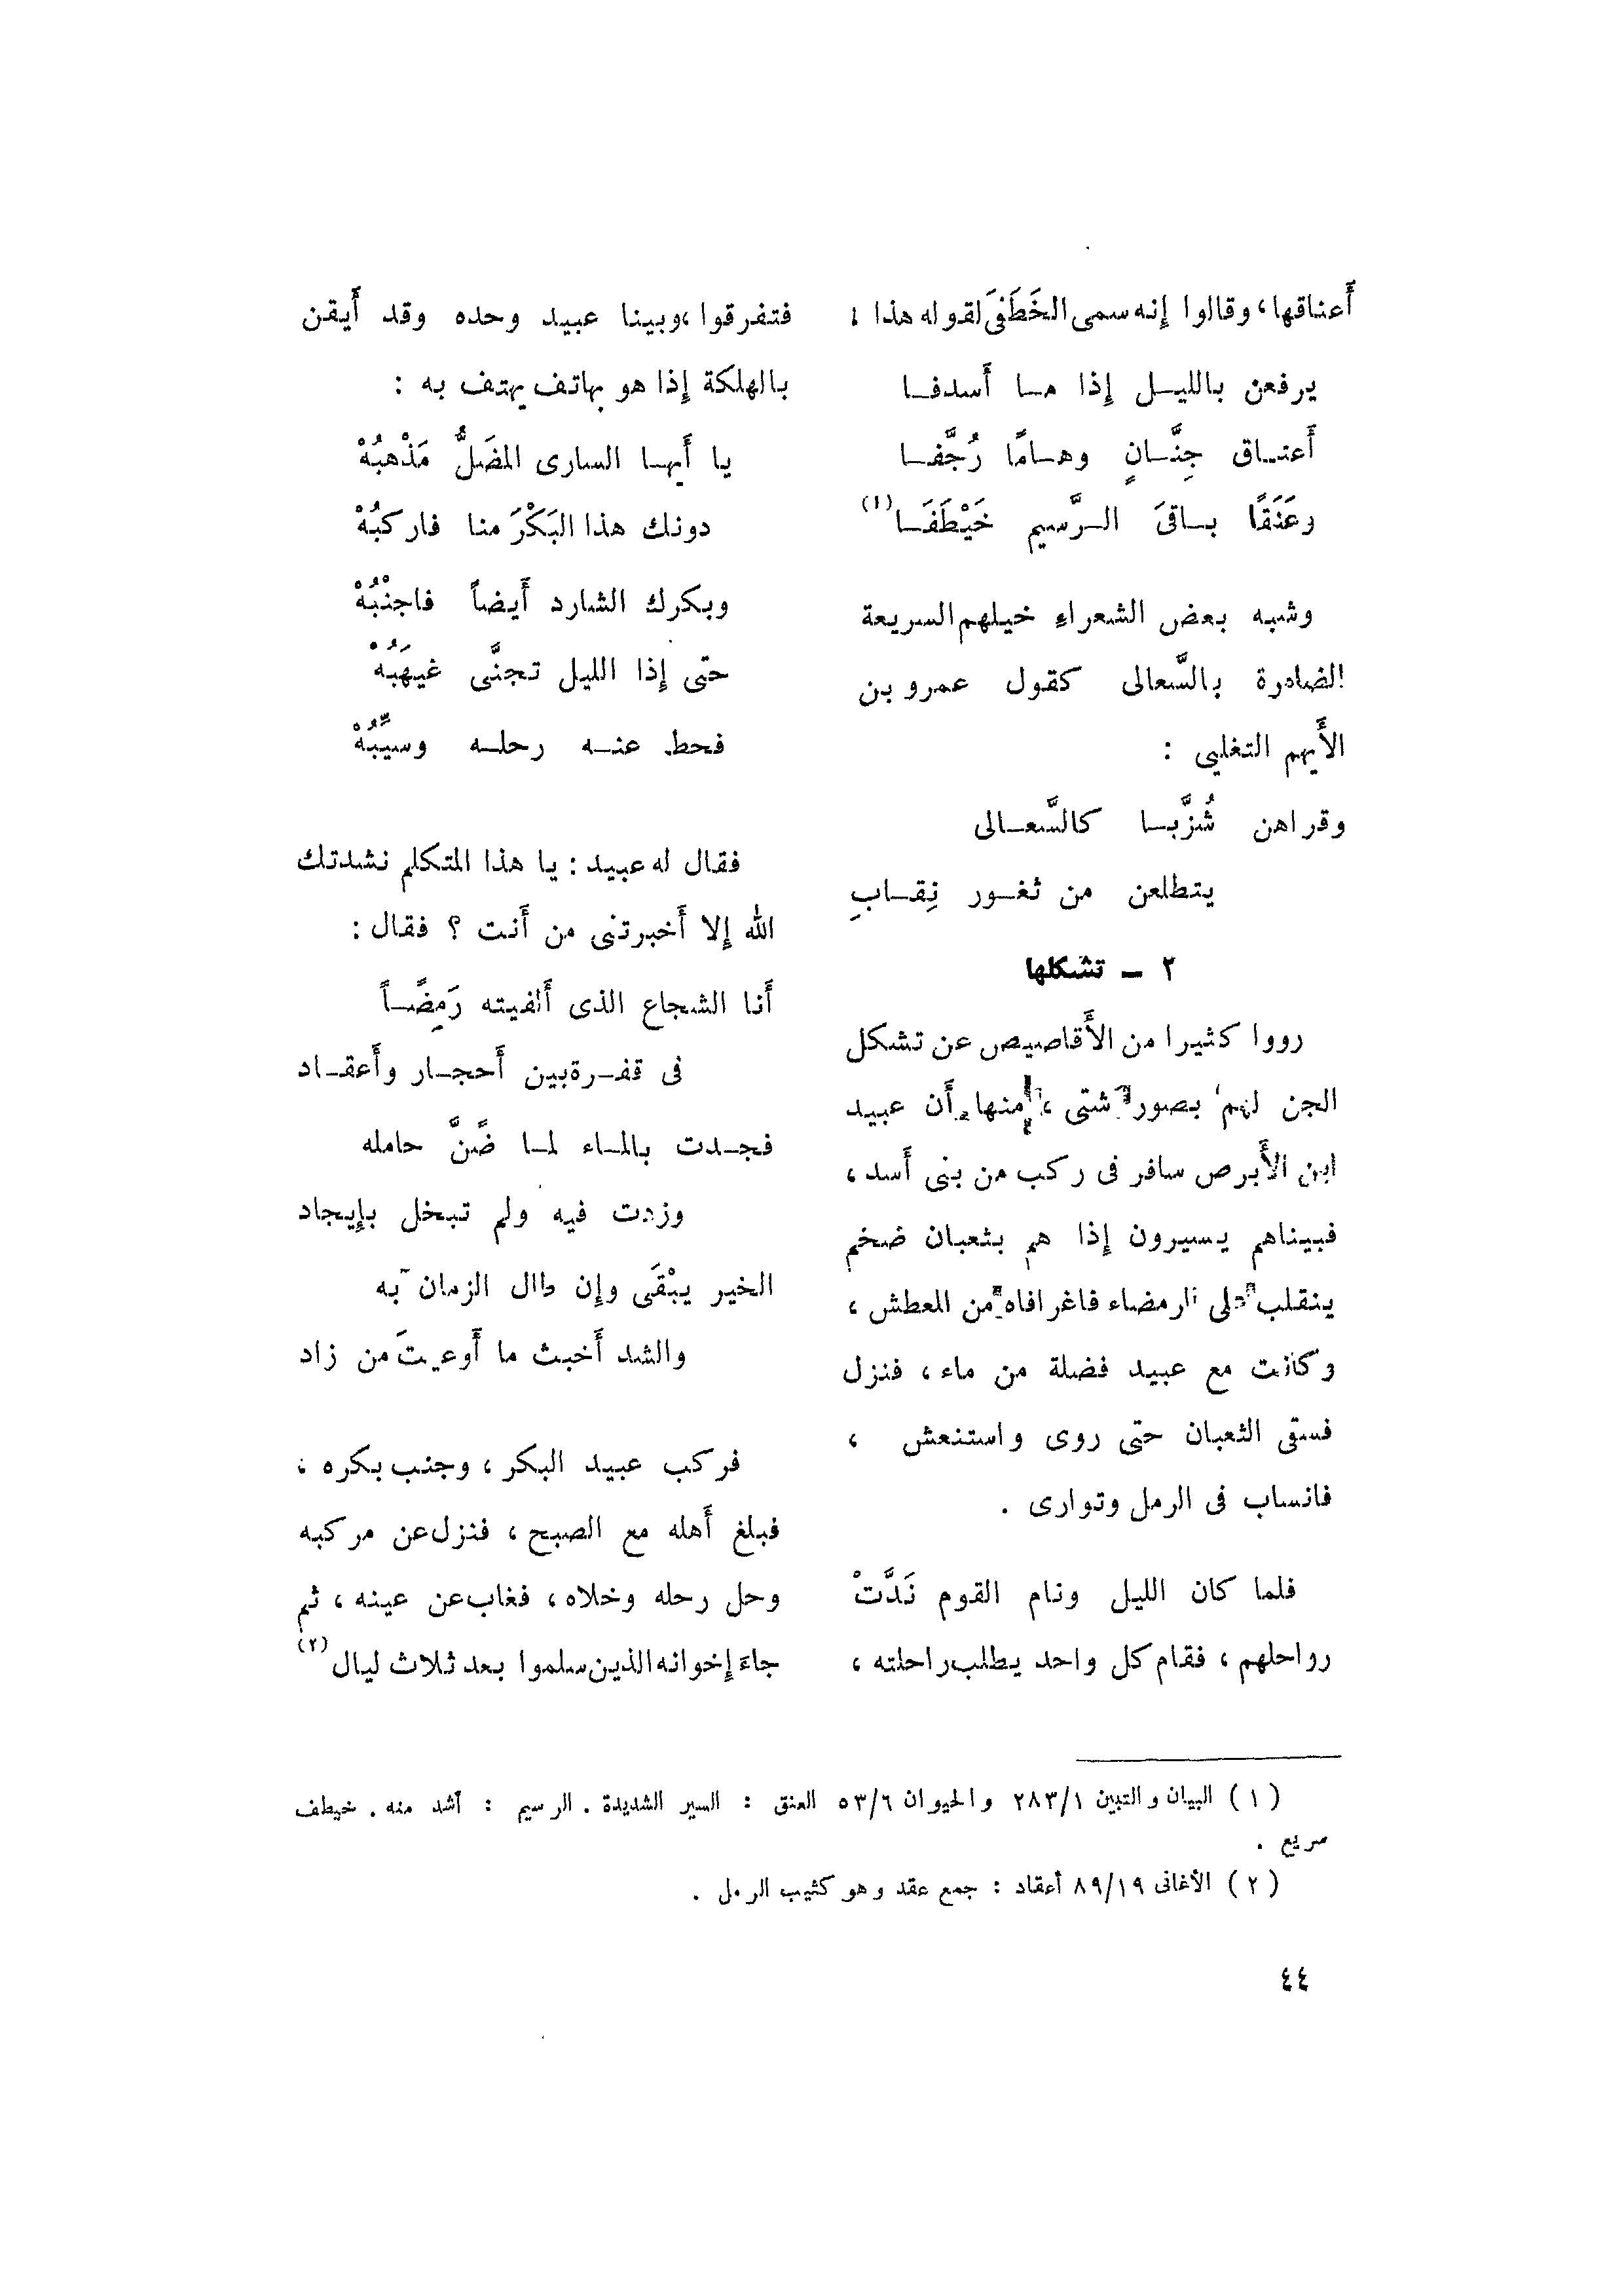 أَعناقها، وقالوا إِنه سمى الخَطَفَى لقوله هذا :
يرفعن بالليـل إِذا مـا أَسدفـا
أَعنـاق جِنَّـانٍ وهـامًا رُجَّفـا
وعَنَقًا بـاقىَ الـرَّسيم خَيْطَفَـا (١)
وشبه بعض الشعراءِ خيلهم السريعة
الضامرة بالسَّعالى كقول عمرو بن
الأَيهم التغلبى :
وقراهن شُزَّبـا كالسَّعـالى
يتطلعن من ثغـور نِقـابِ
٢ ـ تشكلها
رووا كثيرا من الأَقاصيص عن تشكل
الجن لهم بصور شتى ، منها أَن عبيد
ابن الأَبرص سافر فى ركب من بنى أَسد ،
فبيناهم يسيرون إِذا هم بثعبان ضخم
ينقلب على الرمضاء فاغرا فاه من العطش ،
وكانت مع عبيد فضلة من ماء ، فنزل
فسقى الثعبان حتى روى واستنعش ،
فانساب فى الرمل وتوارى .
فلما كان الليل ونام القوم نَدَّتْ
رواحلهم ، فقام كل واحد يطلب راحلته ،
فتفرقوا ،وبينا عبيد وحده وقد أَيقن
بالهلكة إِذا هو بهاتف يهتف به :
يا أَيهـا السارى المضَلُّ مَذْهبُهْ
دونك هذا البَكْرَ منا فاركبُهْ
وبكرك الشارد أَيضاً فاجنْبُهْ
حتى إِذا الليل تجنَّى غيهَبُهْ
فحط عنـه رحلـه وسيِّبُهْ
فقال له عبيد : يا هذا المتكلم نشدتك
الله إِلا أَخبرتنى من أَنت ؟ فقال :
أَنا الشجاع الذى أَلفيته رَمِضًـاً
فى قفـرة بين أَحجـار وأَعقـاد
فجـدت بالمـاء لمـا ضًنَّ حامله
وزدت فيه ولم تبخل بإِيجاد
الخير يبْقَى وإِن طال الزمان به
والشد أَخبث ما أَوعيتَ من زاد
فركب عبيد البكر ، وجنب بكره ،
فبلغ أَهله مع الصبح ، فنزل عن مركبه
وحل رحله وخلاه ، فغاب عن عينه ، ثم
جاءَ إِخوانه الذين سلموا بعد ثلاث ليال (٢)
( ١ ) البيان والتبين ٢٨٣/١ والحيوان ٥٣/٦ العنق : السير الشديدة . الرسيم : أشد منه . خيطف
سريع .
( ٢ ) الأغانى ٨٩/١٩ أعقاد : جمع عقد وهو كثيب الرمل .
٤٤